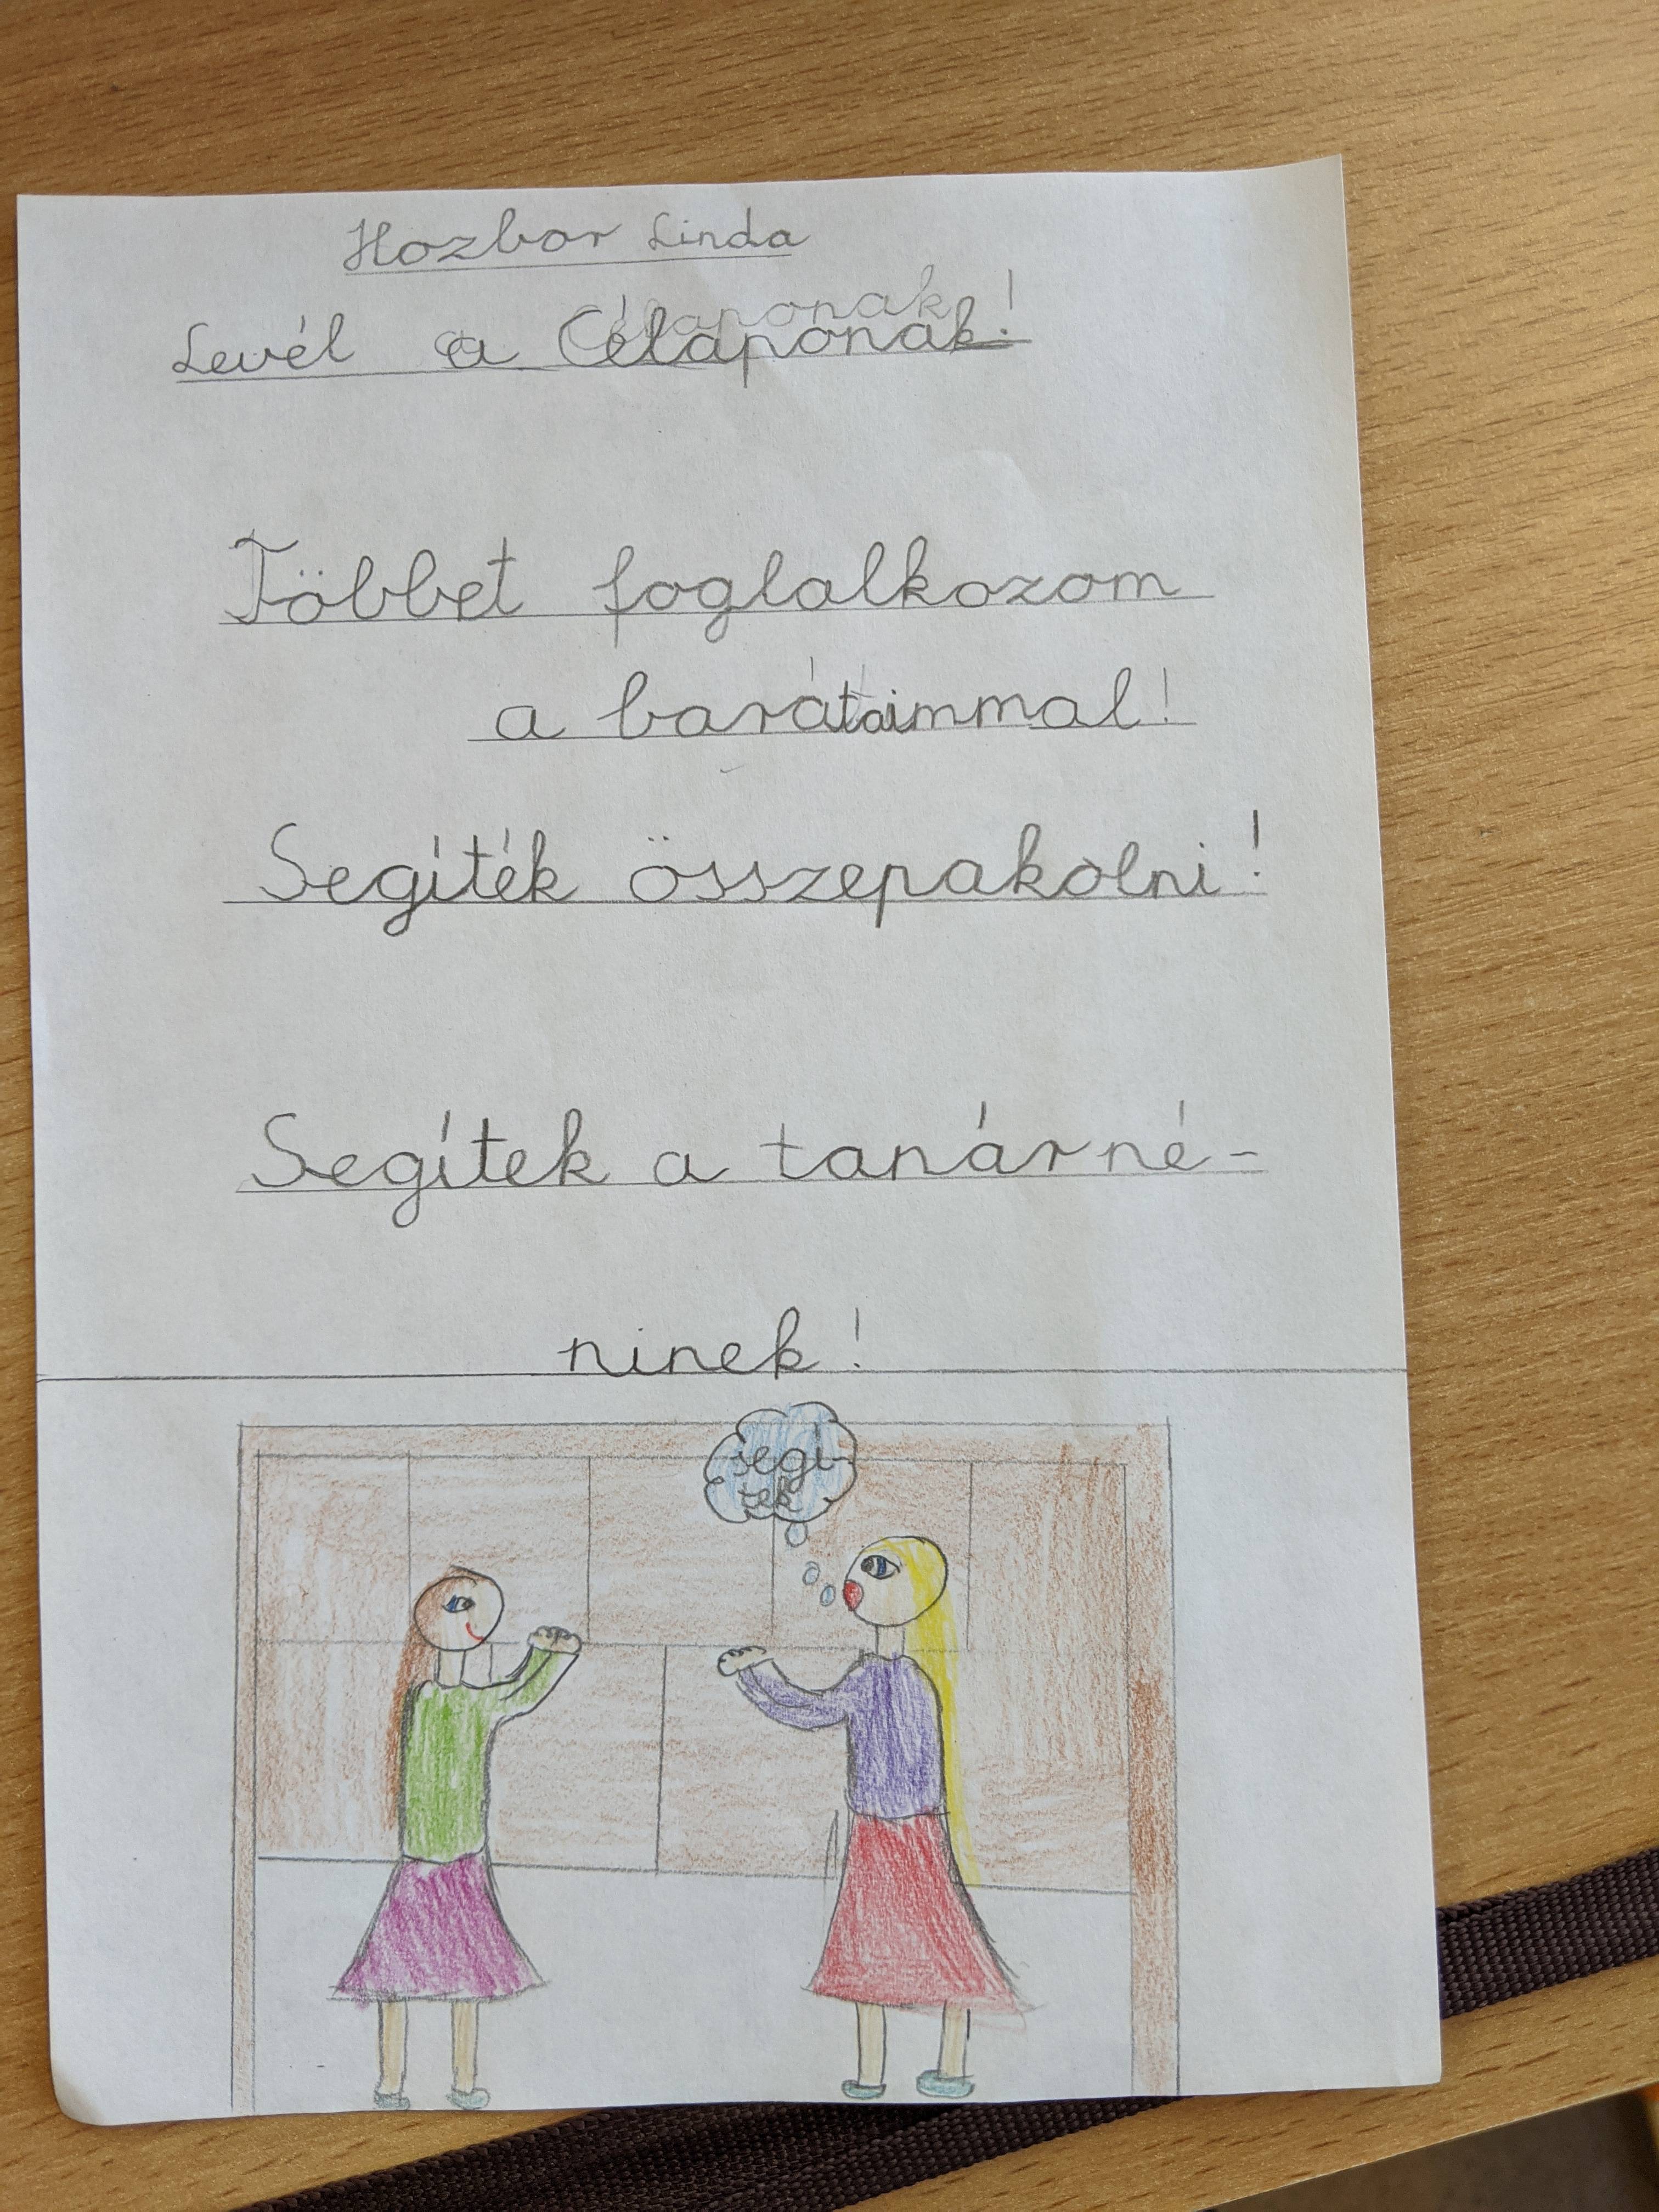 Hozbor Linda
Levél a Célaponak!
Többet foglalkozom
a barátaimmal!
Segíték összepakolni!
Segítek a tanárné-
ninek!
segí-
tek